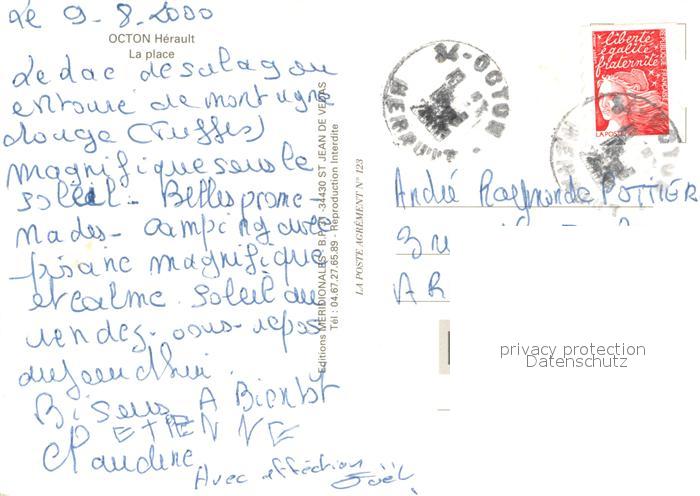 Le 9-8.2000
OCTON Hérault
La place
Le Lac de salagou
entouré de montagne
rouge (ruffes)
magnifique sous le
soleil. Belles prome-
nades - camping avec
piscine magnifique
et calme. Soleil au
rendez-vous - repos
aujourd'hui.
Bisous A Bientôt
ETIENNE
Claudine
Avec affection Joël.
Editions MERIDIONALES - B.P. - 34430 ST JEAN DE VEDAS
Tél : 04.67.27.65.89 - Reproduction Interdite
LA POSTE AGRÉMENT N° 123
OCTON
HERAULT
liberté
égalité
fraternité
REPUBLIQUE FRANÇAISE
LA POSTE
OCTON
HERAULT
André Raymonde POTTIER
3
AR
privacy protection
Datenschutz